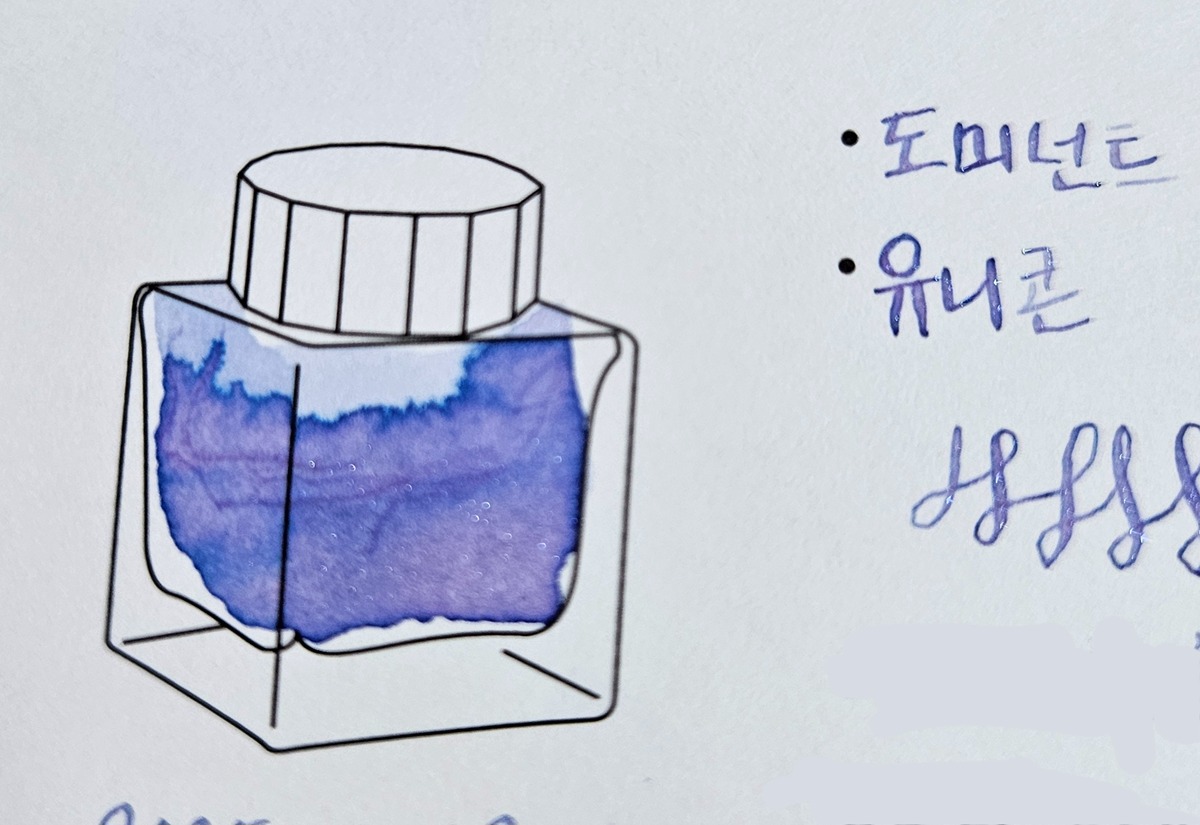 • 도미넌트
• 유니콘